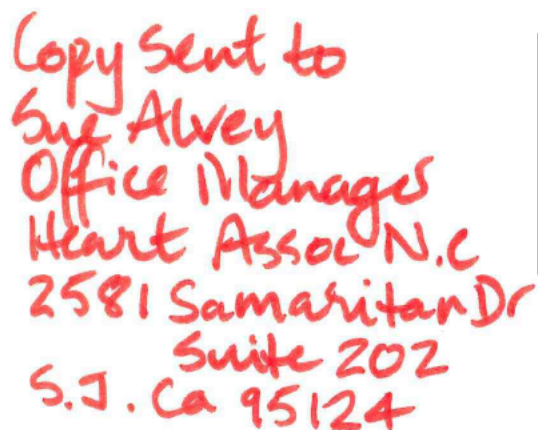 Copy Sent to
Sue Alvey
Office Manager
Heart Assoc N.C
2581 Samaritan Dr
Suite 202
S.J. Ca 95124